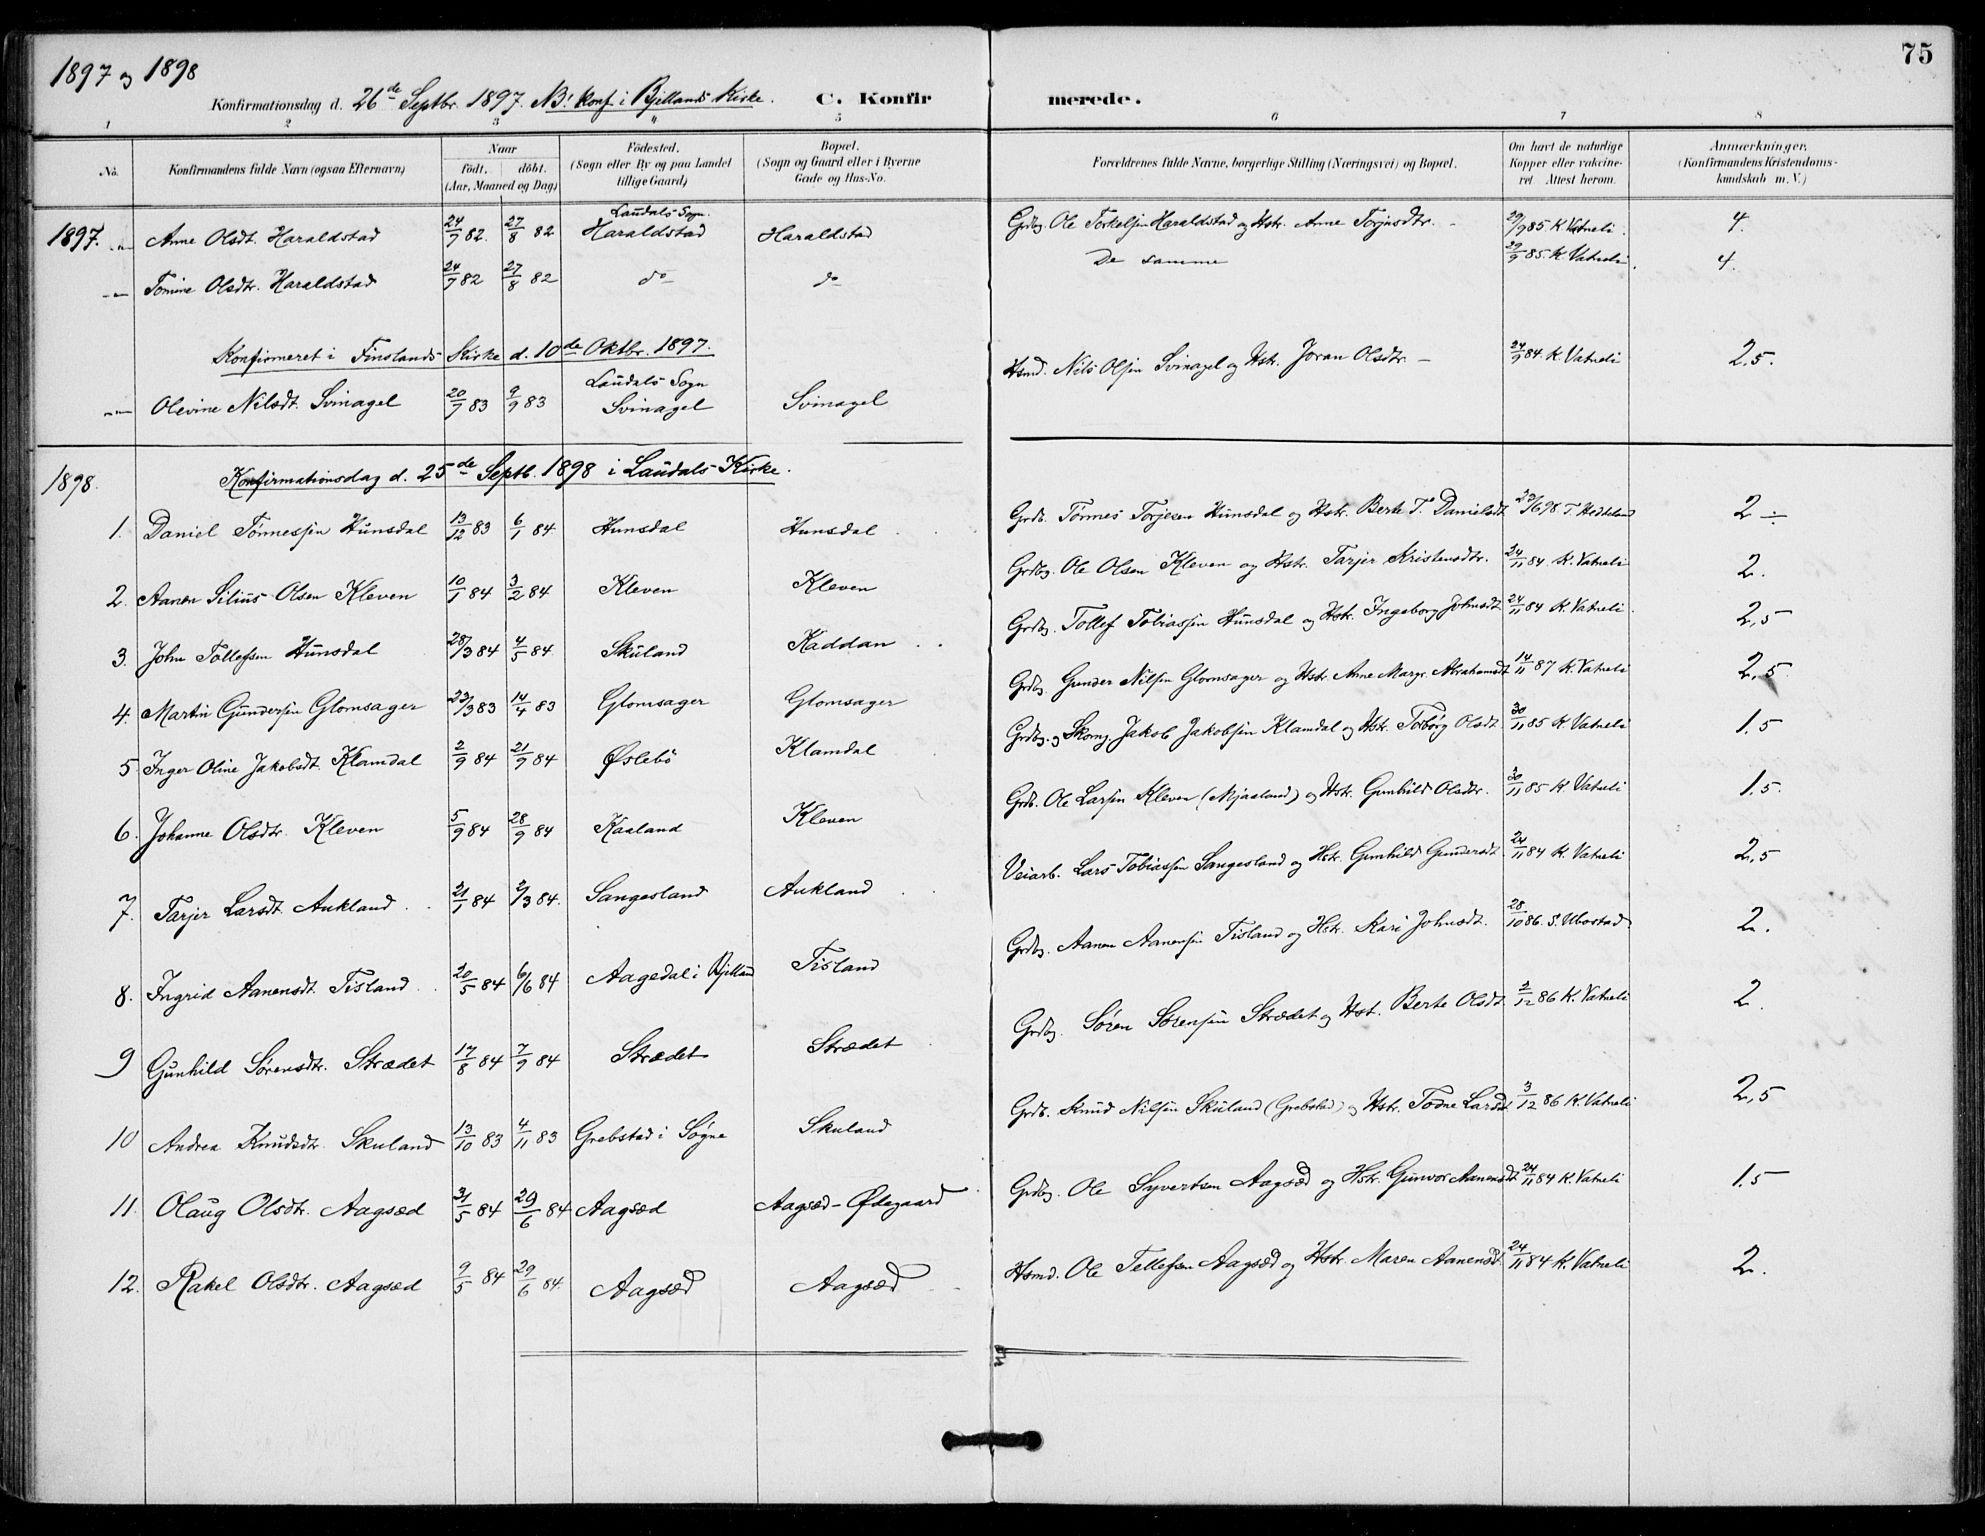 75
1897 og 1898
Konfirmationsdag d. 26de Septbr. 1897. NB! Konf. i Bjellands Kirke. C. Konfirmerede.
1 2 3 4 5 6 7 8
No. Konfirmandens fulde Navn (ogsaa Efternavn) Naar födt. döbt. (Aar, Maaned og Dag) Födested. (Sogn eller By og paa Landet tillige Gaard) Bopæl. (Sogn og Gaard eller i Byerne Gade og Hus-No. Forældrenes fulde Navne, borgerlige Stilling (Næringsvei) og Bopæl. Om havt de naturlige Kopper eller vakcineret. Attest herom. Anmærkninger. (Konfirmandens Kristendomskundskab m. V.)
1897. Anne Olsdt. Haraldstad 24/7 82. 27/8 82 Laudals Sogn. Haraldstad Haraldstad Grdbg. Ole Torkelsen Haraldstad og Hstr. Anne Torjusdtr. 29/9 85 K. Vatneli. 4.
Tomine Olsdtr. Haraldstad 24/7 82 27/8 82 do do De samme 29/9 85. K. Vatneli. 4.
Konfirmeret i Finslands Kirke d. 10de Oktbr. 1897.
Olevine Nilsdt. Svinagel 20/7 83 9/9 83 Laudals Sogn Svinagel Svinagel Hsmd. Nils Olsen Svinagel og Hstr. Joran Olsdtr. 24/9 84. K. Vatneli 2,5.
1898. Konfirmationsdag d. 25de Septb. 1898 i Laudals Kirke.
1. Daniel Tønnessen Hunsdal 13/12 83 6/1 84. Hunsdal Hunsdal Grdb. Tønnes Torjesen Hunsdal og Hstr. Berte T. Danielsdt. /6 98 T. Hedteland 2 ÷
2. Aanen Silius Olsen Kleven 10/1 84 3/2 84 Kleven Kleven Grdbg. Ole Olsen Kleven og Hstr. Tarjer Kristensdtr. 24/11 84. K. Vatneli 2.
3. John Tollefsen Hunsdal 28/3 84 4/5 84 Skuland Kaddan Grdbg. Tollef Tobiassen Hunsdal og Hstr. Ingeborg Johnsdt. 24/11 84 K. Vatneli. 2,5
4. Martin Gundersen Glomsager 23/3 83 14/4 83 Glomsager Glomsager Grdbg. Gunder Nilsen Glomsager og Hstr. Anne Margr. Abrahamsdt. 14/11 87 K. Vatneli 2,5.
5 Inger Oline Jakobsdt. Klamdal 2/9 84 21/9 84 Øslebö Klamdal Grdbg. og Skomg. Jakob Jakobsen Klamdal og Hstr. Torborg Olsdt. 30/11 85 K. Vatneli 1,5
6. Johanne Olsdtr. Kleven 5/9 84 28/9 84 Kaaland Kleven Grdb. Ole Larsen Kleven (Mjaaland) og Hstr. Gunhild Olsdtr. 30/11 85 K. Vatneli 1,5.
7. Tarjer Larsdt. Aukland 21/1 84 2/3 84. Sangesland Aukland Veiarb. Lars Tobiassen Sangesland og Hstr. Gunhild Gundersdt. 24/11 84 K. Vatneli 2,5
8. Ingrid Aanensdt. Tisland 20/5 84 6/6 84 Aagedal i Bjelland Tisland Grdbg. Aanen Aanensen Tisland og Hstr. Kari Johnsdt. 28/10 86. S. Ubostad 2.
9 Gunhild Sørensdtr. Strædet 17/8 84 7/9 84 Strædet Strædet Grdbg. Søren Sørensen Strædet og Hst. Berte Olsdt. 2/12 86 K. Vatneli 2.
10 Andrea Knudsdtr. Skuland 13/10 83 4/11 83 Grebstad i Søgne Skuland Grdb. Knud Nilsen Skuland (Grebstad) og Hstr. Todne Larsdt. 3/12 86 K. Vatneli 2,5
11. Olaug Olsdtr. Aagsæd 31/5 84 29/6 84 Aagsæd Aagsæd-Ødegaard Grdbg. Ole Syvertsen Aagsæd og Hstr. Gunvor Aanensdt. 24/11 84 K. Vatneli 1,5
12. Rakel Olsdtr. Aagsæd 9/5 84 29/6 84. Aagsæd Aagsæd Hsmd. Ole Tellefsen Aagsæd og Hstr. Maren Aanensd. 24/11 84 K. Vatneli 2.